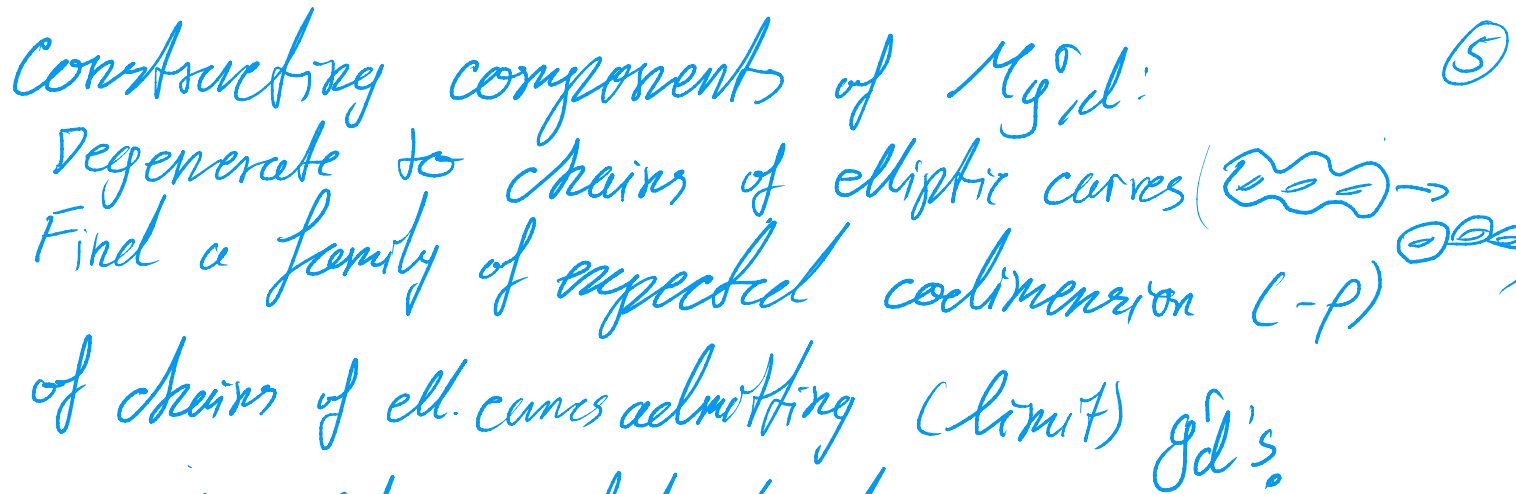 Constructing components of M^r_{g,d}: ⑤
Degenerate to chains of elliptic curves (
Find a family of expected codimension (-ρ)
of chains of ell. curves admitting (limit) g^r_d's.